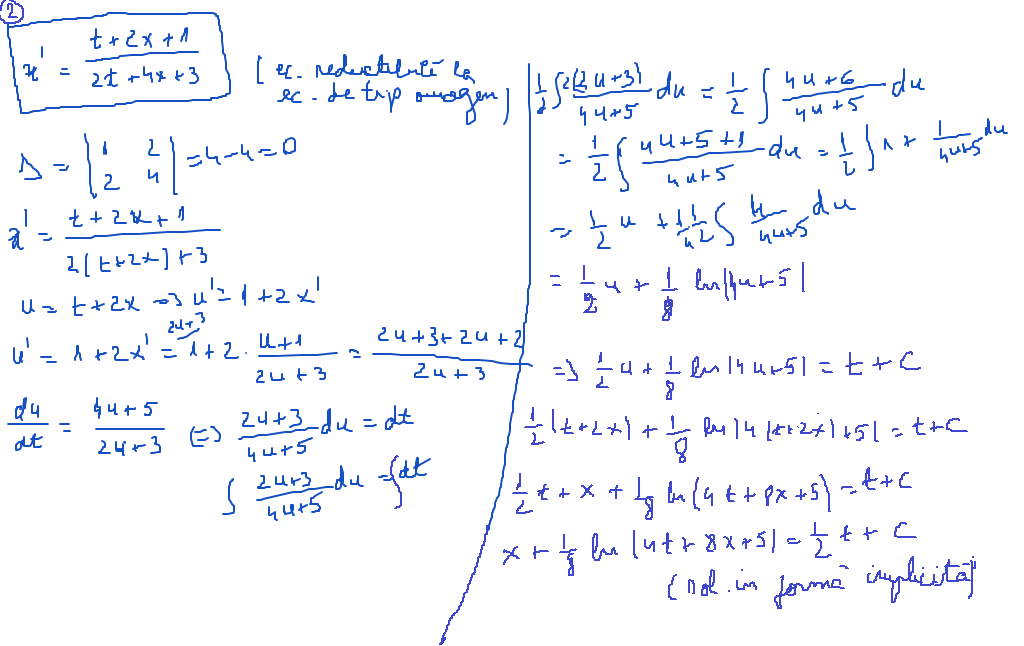 ②
x' = (t+2x+1)/(2t+4x+3) (ec. reductibilă la
ec. de tip omogen)
Δ = |1 2; 2 4| = 4-4 = 0
x' = (t+2x+1)/(2(t+2x)+3)
u = t+2x => u' = 1+2x'
u' = 1+2x' = ^{2u+3)}1+2·(u+1)/(2u+3) = (2u+3+2u+2)/(2u+3)
du/dt = (4u+5)/(2u+3) (=) (2u+3)/(4u+5) du = dt
∫ (2u+3)/(4u+5) du = ∫dt
1/2 ∫ 2(2u+3)/(4u+5) du = 1/2 ∫ (4u+6)/(4u+5) du
= 1/2 ∫ (4u+5+1)/(4u+5) du = 1/2 ∫ 1+ 1/(4u+5) du
= 1/2 u + 1/4 1/2 ∫ 4/(4u+5) du
= 1/2 u + 1/8 ln|4u+5|
=> 1/2 u + 1/8 ln|4u+5| = t+C
1/2 (t+2x) + 1/8 ln|4(t+2x)+5| = t+C
1/2 t + x + 1/8 ln(4t+8x+5) = t+C
x + 1/8 ln|4t+8x+5| = 1/2 t + C
(sol. în formă implicită)